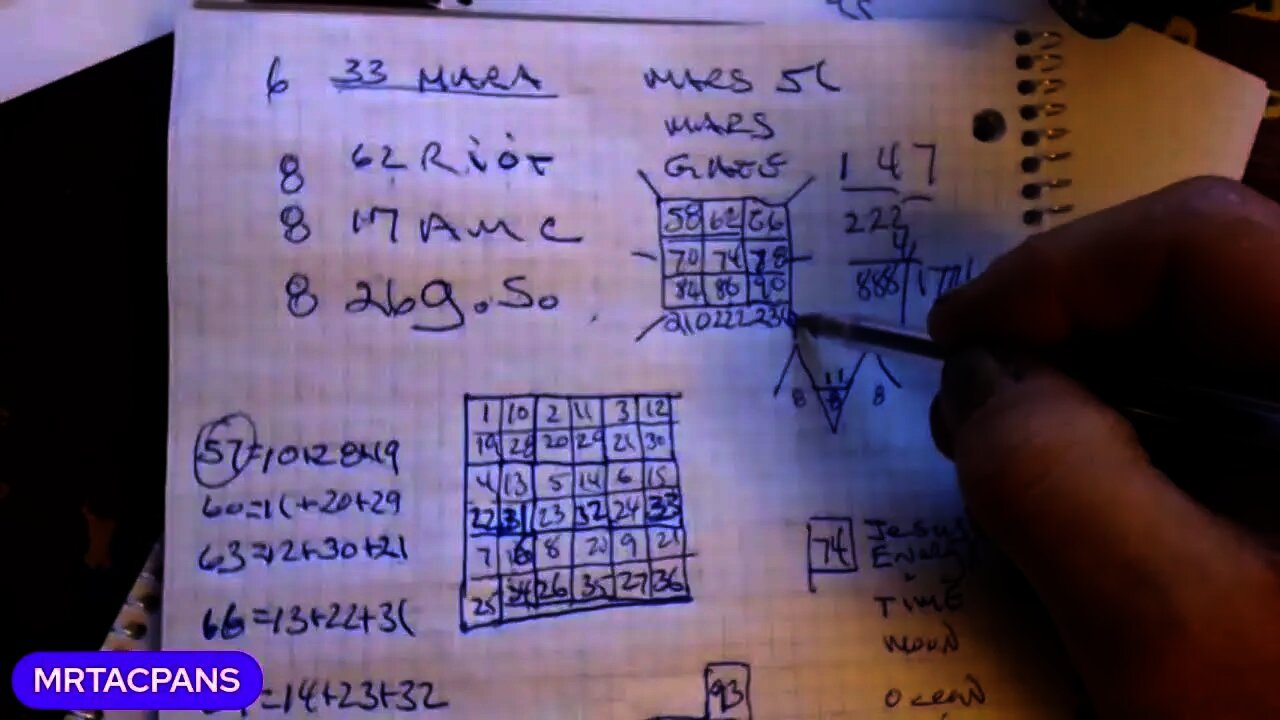 6 33 MARA MARS 51
MARS
GATE
8 62 RiOT
8 17 AMC
8 26 g.So
1 47
222
4
888
58 62 66
70 74 78
82 86 90
210 222 234
11
8 8 8
1 10 2 11 3 12
19 28 20 29 21 30
4 13 5 14 6 15
22 31 23 32 24 33
7 16 8 20 9 21
25 34 26 35 27 36
57=10+28+19
60=11+20+29
63=12+30+21
66=13+22+31
=14+23+32
74 Jesus
TIME
MOON
OCEAN
93
MRTACPANS